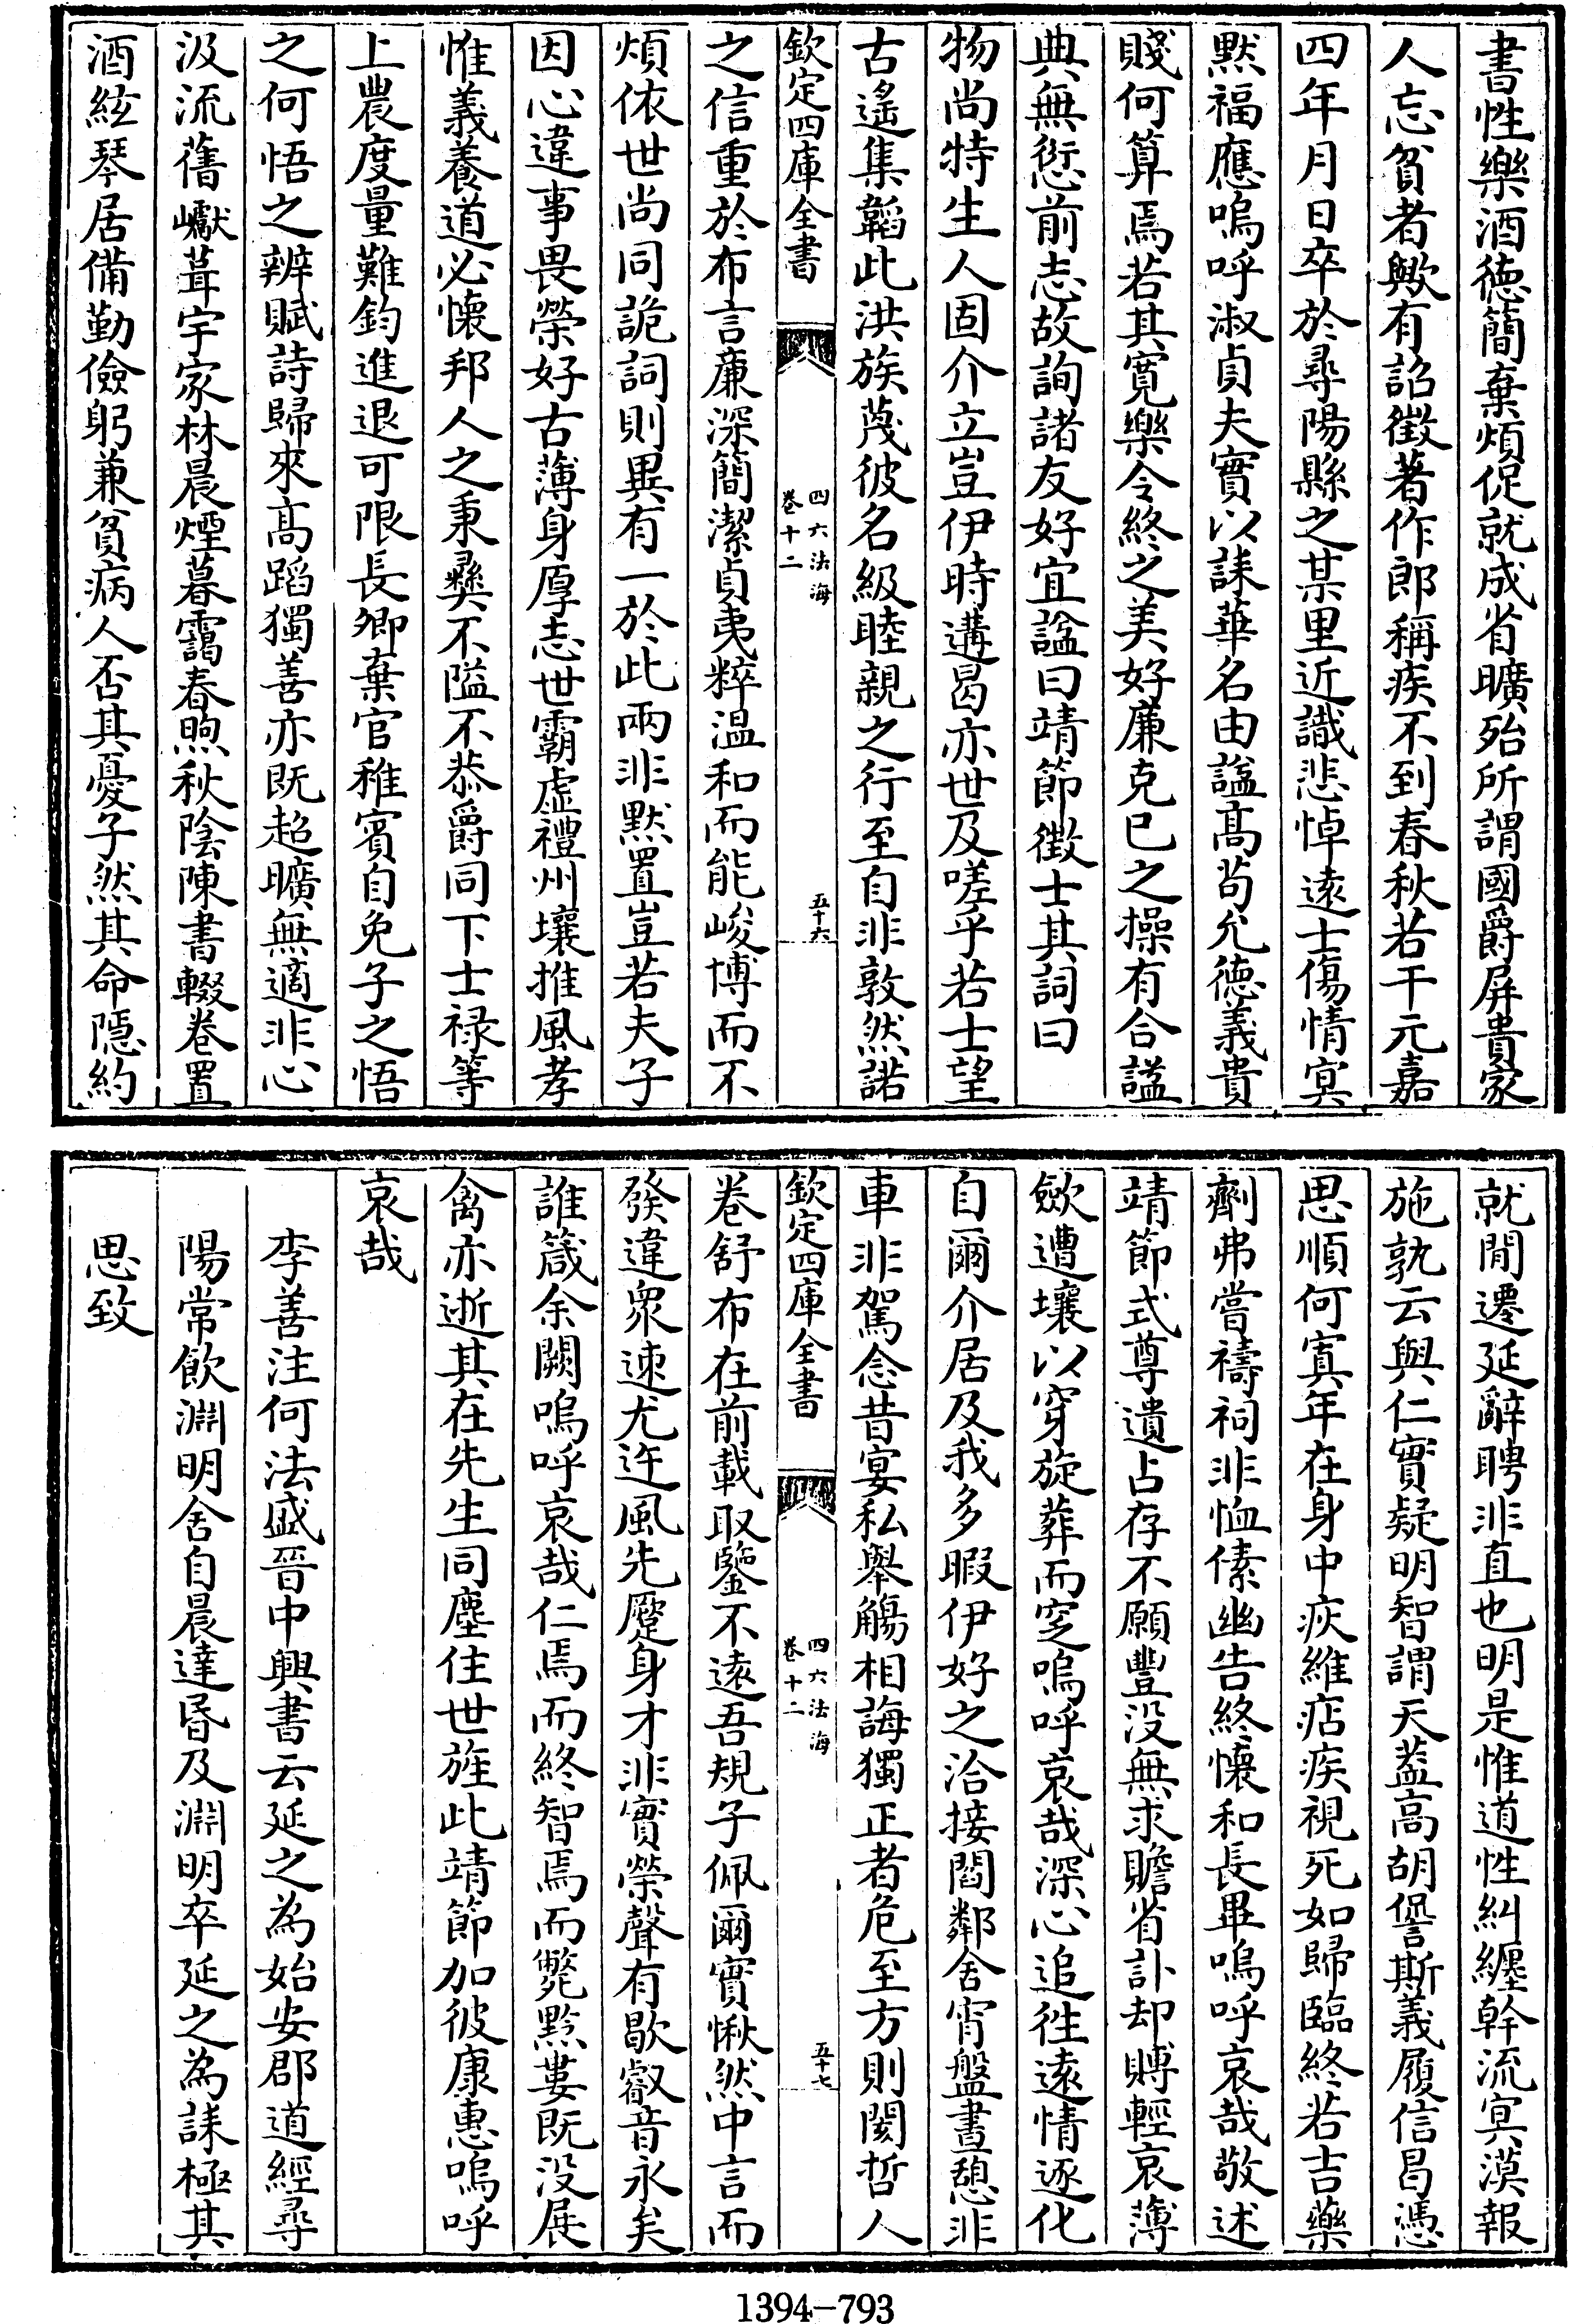 書性樂酒德簡棄煩促就成省曠殆所謂國爵屏貴家
人忘貧者歟有詔徵著作郎稱疾不到春秋若干元嘉
四年月日卒於尋陽縣之某里近識悲悼遠士傷情冥
黙福應嗚呼淑貞夫實以誄華名由諡髙茍允德義貴
賤何算焉若其寛樂令終之美好廉克已之操有合諡
典無愆前志故詢諸友好宜諡曰靖節徵士其詞曰
物尚特生人固介立豈伊時遘曷亦世及嗟乎若士望
古遙集韜此洪族蔑彼名級睦親之行至自非敦然諾
欽定四庫全書
四六法海
卷十二
五十六
之信重於布言廉深簡潔貞夷粹温和而能峻博而不
煩依世尚同詭詞則異有一於此兩非黙置豈若夫子
因心違事畏榮好古薄身厚志世霸虚禮州壤推風孝
惟義養道必懷邦人之秉彝不隘不恭爵同下士禄等
上農度量難鈞進退可限長卿棄官稚賓自免子之悟
之何悟之辨賦詩歸來髙蹈獨善亦既超曠無適非心
汲流舊巘葺宇家林晨煙暮靄春煦秋陰陳書輟卷置
酒絃琴居備勤儉躬兼貧病人否其憂子然其命隱約
就閒遷延辭聘非直也明是惟道性糾纒幹流冥漠報
施孰云與仁實疑明智謂天葢高胡諐斯義履信曷憑
思順何寘年在身中疢維痁疾視死如歸臨終若吉藥
劑弗嘗禱祠非恤傃幽告終懷和長畢嗚呼哀哉敬述
靖節式尊遺占存不願豐没無求贍省訃却賻輕哀薄
斂遭壤以穿旋葬而窆嗚呼哀哉深心追徃逺情逐化
自爾介居及我多暇伊好之洽接閻鄰舍宵盤晝憩非
車非駕念昔宴私舉觴相誨獨正者危至方則閡哲人
欽定四庫全書
四六法海
卷十二
五十七
卷舒布在前載取鑒不遠吾規子佩爾實愀然中言而
發違衆速尤迕風先蹷身才非實榮聲有歇叡音永矣
誰箴余闕嗚呼哀哉仁焉而終智焉而斃黔婁既没展
禽亦逝其在先生同塵往世旌此靖節加彼康惠嗚呼
哀哉
李善注何法盛晉中興書云延之為始安郡道經尋
陽常飲淵明舍自晨達昏及淵明卒延之為誄極其
思致
1394-793